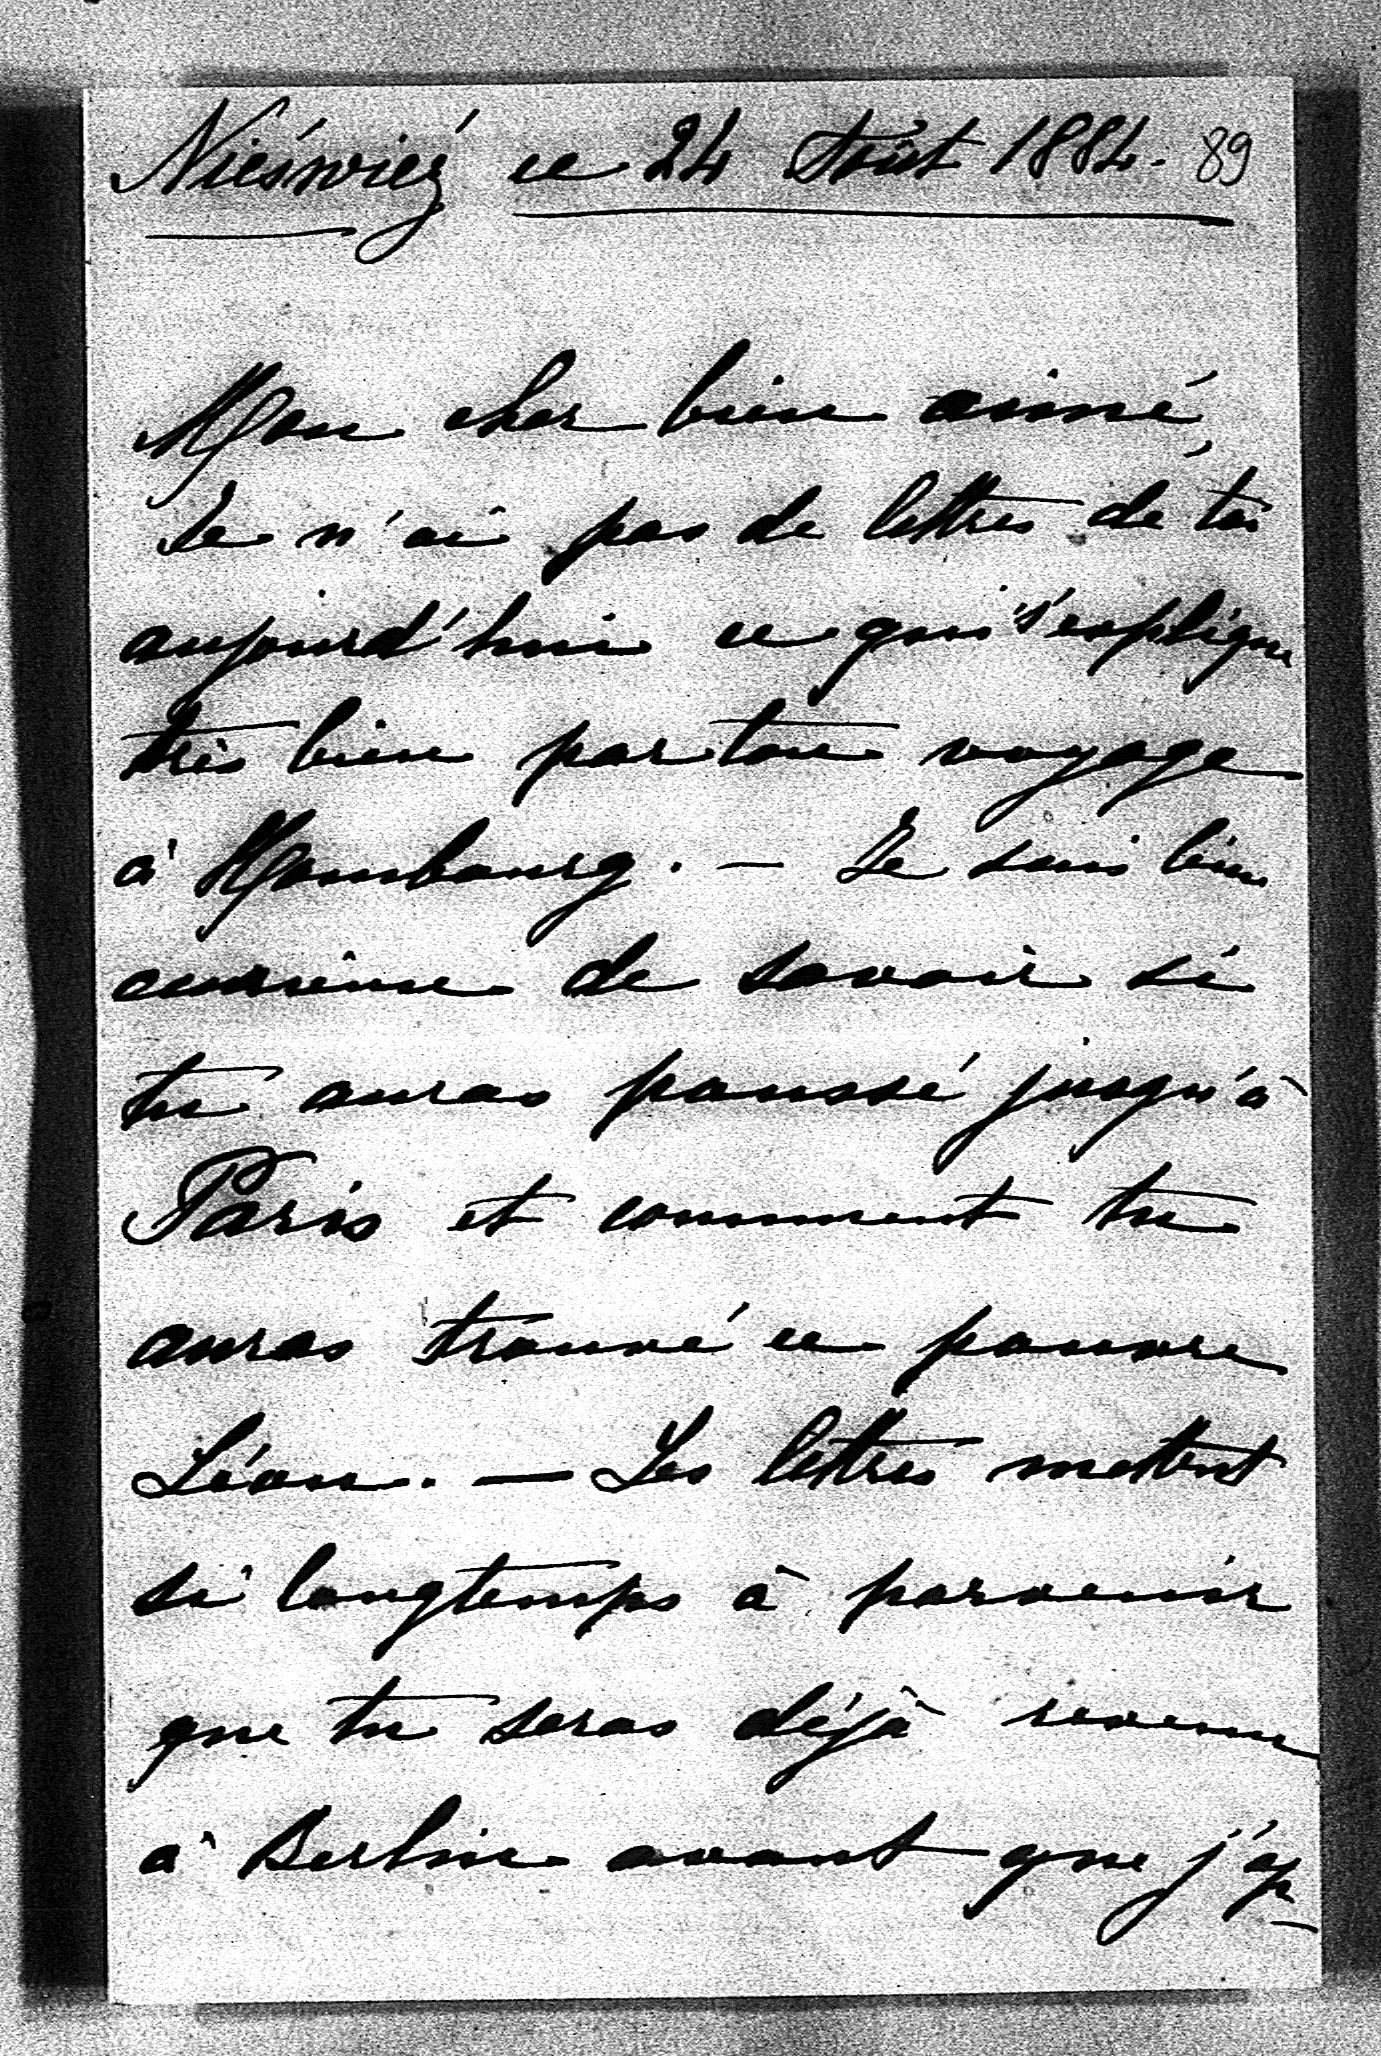 Nieśwież ce 24 Août 1884. 89
Mon cher bien aimé,
Je n'ai pas de lettres de toi
aujourd'hui ce qui s'explique
très bien par ton voyage
à Hombourg. — Je suis bien
curieuse de savoir si
tu auras poussé jusqu'à
Paris et comment tu
auras trouvé ce pauvre
Léon. — Les lettres mettent
si longtemps à parvenir
que tu seras déjà revenu
à Berlin avant que j'ap-